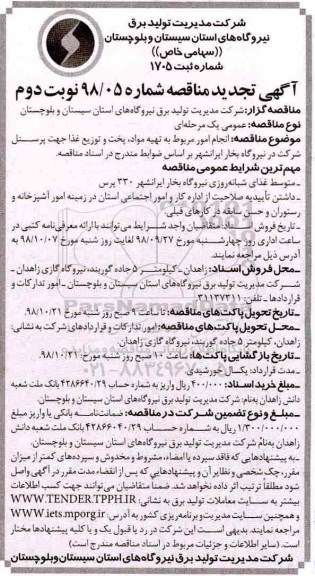 شرکت مدیریت تولید برق
نیروگاه‌های استان سیستان و بلوچستان
((سهامی خاص))
شماره ثبت ۱۷۰۵
آگهی تجدید مناقصه شماره ۹۸/۰۵ نوبت دوم
مناقصه گزار: شرکت مدیریت تولید برق نیروگاه‌های استان سیستان و بلوچستان
نوع مناقصه: عمومی یک مرحله‌ای
موضوع مناقصه: انجام امور مربوط به تهیه مواد، پخت و توزیع غذا جهت پرسنل
شرکت در نیروگاه بخار ایرانشهر بر اساس ضوابط مندرج در اسناد مناقصه.
مهم‌ترین شرایط عمومی مناقصه
ـ متوسط غذای شبانه‌روزی نیروگاه بخار ایرانشهر ۳۳۰ پرس
ـ داشتن تأییدیه صلاحیت از اداره کار و امور اجتماعی استان در زمینه امور آشپزخانه و
رستوران و حسن سابقه در کارهای قبلی
ـ تاریخ فروش اسناد: متقاضیان واجد شرایط می‌توانند با ارائه معرفی‌نامه کتبی در
ساعت اداری روز چهارشنبه مورخ ۹۸/۰۹/۲۷ لغایت روز شنبه مورخ ۹۸/۱۰/۰۷ به
آدرس ذیل مراجعه نمایند.
ـ محل فروش اسناد: زاهدان ـ کیلومتر ۵ جاده گوربند، نیروگاه گازی زاهدان ـ
شرکت مدیریت تولید برق نیروگاه‌های استان سیستان و بلوچستان ـ امور تدارکات و
قراردادها ـ تلفن: ۳۱۱۳۷۳۱۱
ـ تاریخ تحویل پاکت‌های مناقصه: تا ساعت ۹ صبح روز شنبه مورخ ۹۸/۱۰/۲۱
ـ محل تحویل پاکت‌های مناقصه: امور تدارکات و قراردادهای شرکت به نشانی:
زاهدان، کیلومتر ۵ جاده گوربند، نیروگاه گازی زاهدان.
ـ تاریخ بازگشایی پاکت‌ها: ساعت ۱۰ صبح روز شنبه مورخ: ۹۸/۱۰/۲۱
ـ مدت قرارداد: یکسال خورشیدی.
ـ مبلغ خرید اسناد: ۴۰۰/۰۰۰ ریال واریز به شماره حساب ۴۲۸۶۶۴۰/۲۹ بانک ملت شعبه
دانش زاهدان به‌نام: شرکت مدیریت تولید برق نیروگاه‌های استان سیستان و بلوچستان.
ـ مبلغ و نوع تضمین شرکت در مناقصه: ضمانت‌نامه بانکی یا واریز مبلغ
۱/۳۰۰/۰۰۰/۰۰۰ ریال به شماره حساب ۴۲۸۶۶۰۴۰/۲۹ بانک ملت شعبه دانش
زاهدان به‌نام شرکت مدیریت تولید برق نیروگاه‌های استان سیستان و بلوچستان.
ـ به پیشنهادهایی که فاقد سپرده یا امضاء، مشروط و مخدوش و سپرده‌های کمتر از میزان
مقرر، چک شخصی و نظایر آن و پیشنهادهایی که پس از انقضاء مدت مقرر در آگهی واصل
شود مطلقاً ترتیب اثر داده نخواهد شد. ضمنا متقاضیان می‌توانند جهت کسب اطلاعات
بیشتر به سایت معاملات تولید برق به نشانی: WWW.TENDER.TPPH.IR
و همچنین سایت مدیریت و برنامه‌ریزی کشور به آدرس: www.iets.mporg.ir
مراجعه نمایند. بدیهی است این شرکت در رد یا قبول یک و یا کلیه پیشنهادها مختار
است. (سایر اطلاعات و جزئیات مربوط در اسناد مناقصه مندرج است)
شرکت مدیریت تولید برق نیروگاه‌های استان سیستان و بلوچستان